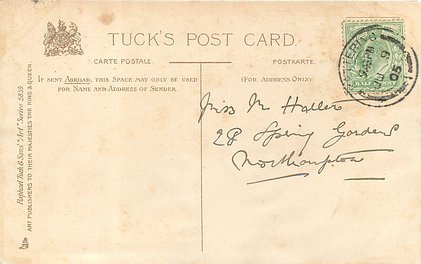 TUCK'S POST CARD.
CARTE POSTALE.
POSTKARTE.
IF SENT ABROAD, THIS SPACE MAY ONLY BE USED
FOR NAME AND ADDRESS OF SENDER.
(FOR ADDRESS ONLY)
Miss M Haller
28 Spring Gardens
Northampton
Raphael Tuck & Sons' "Art" Series 5839.
ART PUBLISHERS TO THEIR MAJESTIES THE KING & QUEEN.
05